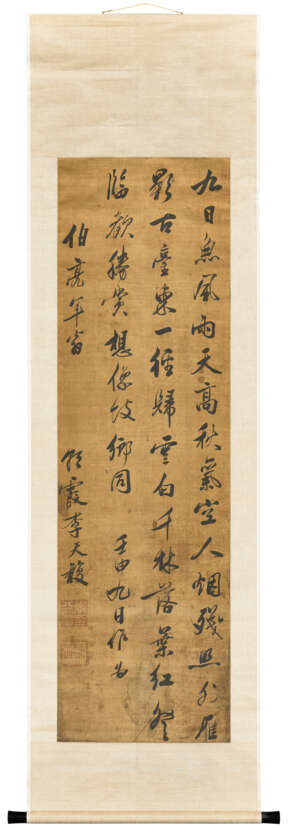 九日無風雨天高秋氣空人烟殘照外雁
影古臺東一徑歸雲白千林落葉紅登
臨歡勝賞想像故鄉同 壬申九日作為
伯亮年翁 霞李天馥